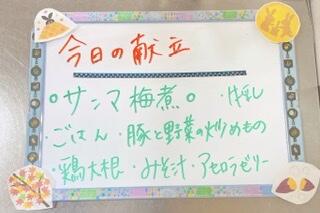 今日の献立
○サンマ梅煮○ ・牛乳
・ごはん ・豚と野菜の炒めもの
・鶏大根 ・みそ汁 ・アセロラゼリー